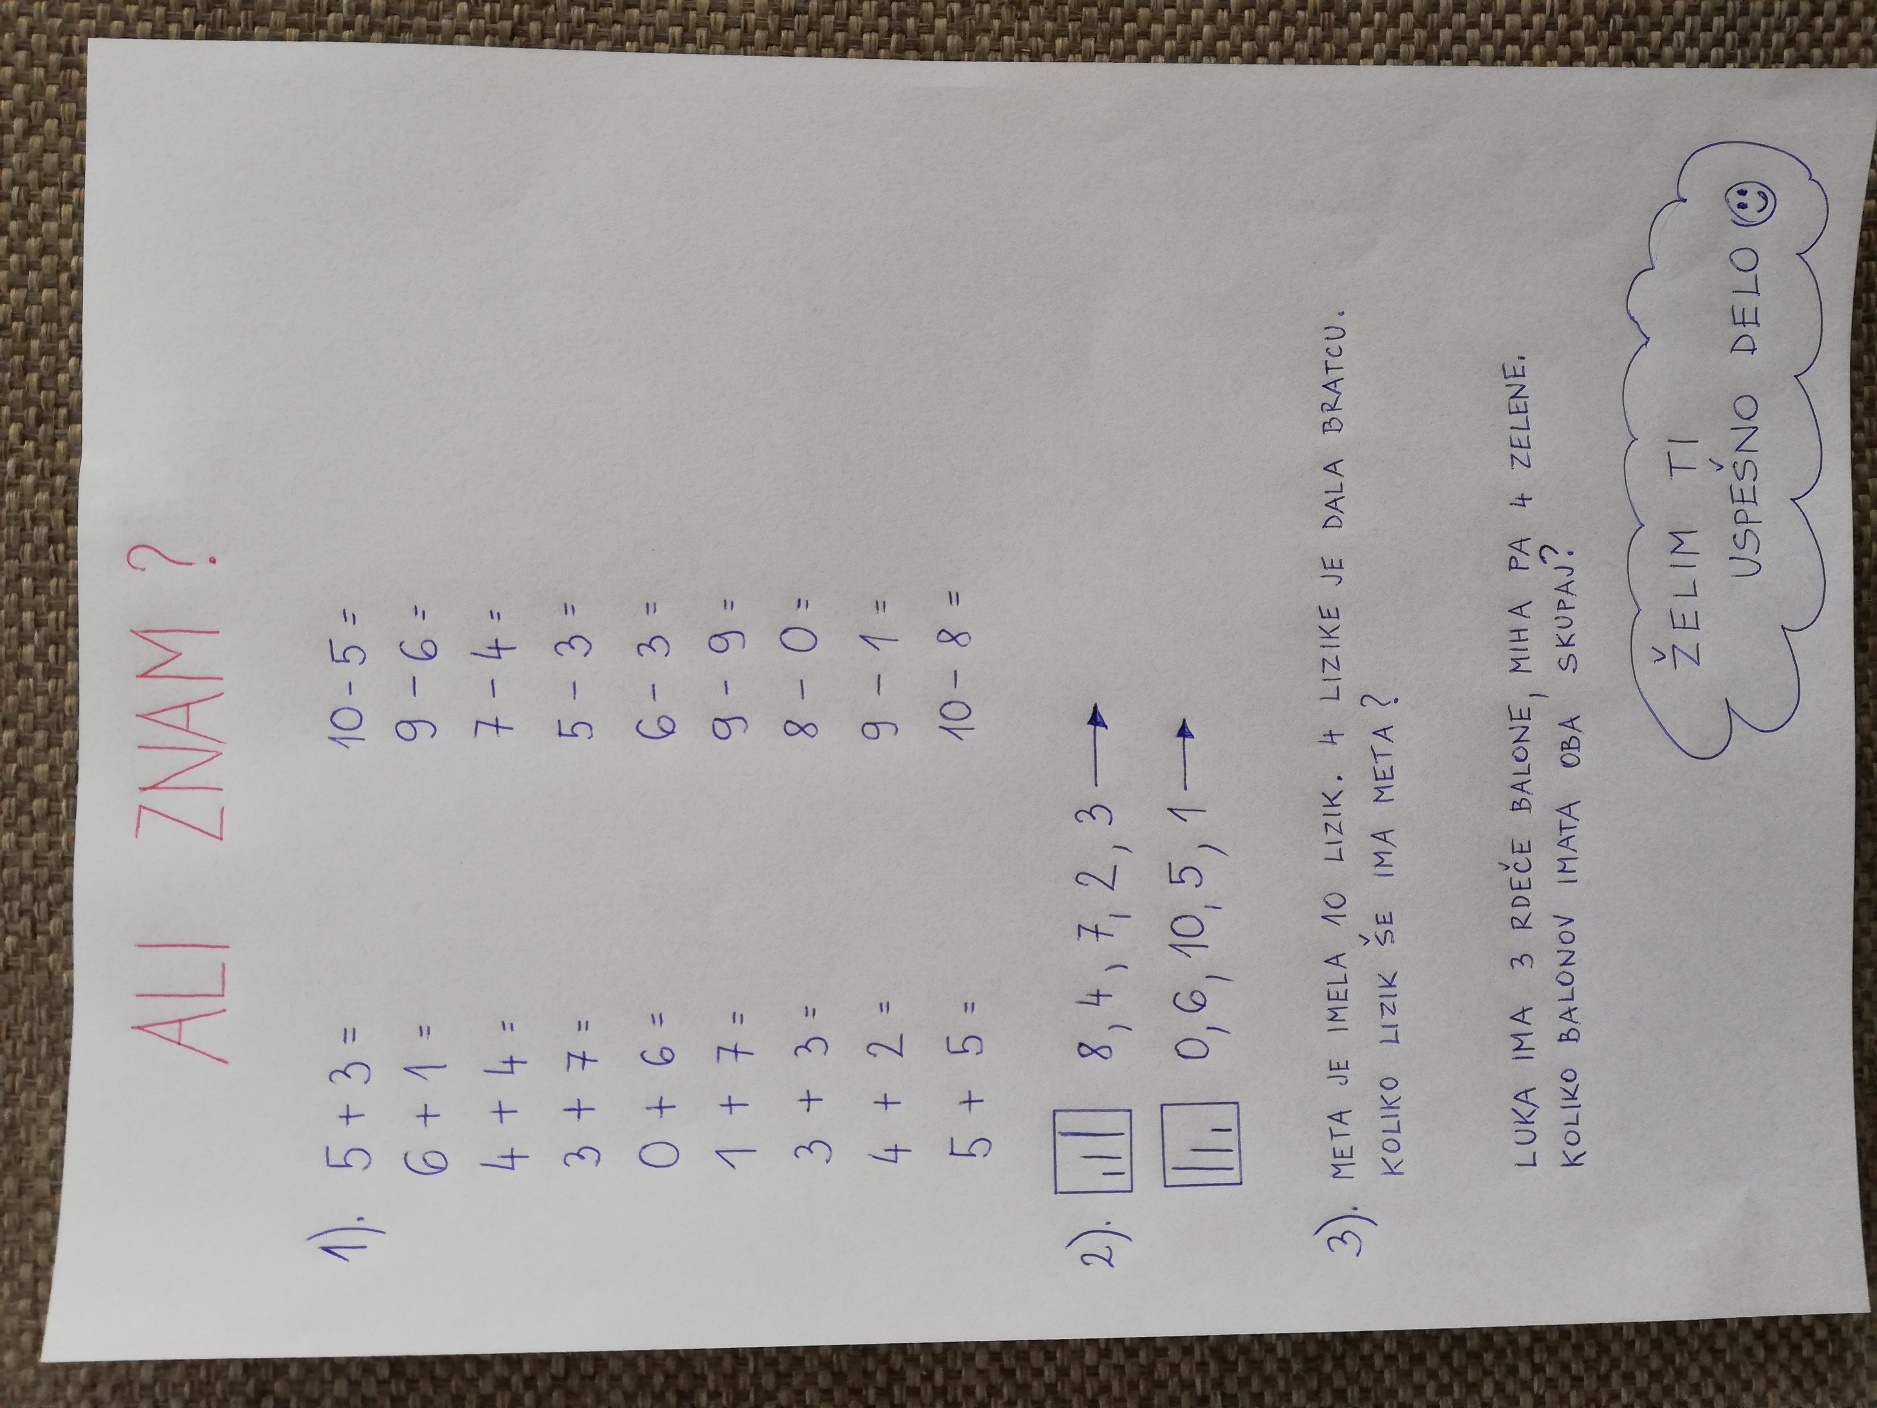 ALI ZNAM?
1). 5 + 3 = 10 - 5 =
6 + 1 = 9 - 6 =
4 + 4 = 7 - 4 =
3 + 7 = 5 - 3 =
0 + 6 = 6 - 3 =
1 + 7 = 9 - 9 =
3 + 3 = 8 - 0 =
4 + 2 = 9 - 1 =
5 + 5 = 10 - 8 =
2). 8, 4, 7, 2, 3 →
0, 6, 10, 5, 1 →
3). META JE IMELA 10 LIZIK. 4 LIZIKE JE DALA BRATCU.
KOLIKO LIZIK ŠE IMA META?
LUKA IMA 3 RDEČE BALONE, MIHA PA 4 ZELENE.
KOLIKO BALONOV IMATA OBA SKUPAJ?
ŽELIM TI
USPEŠNO DELO